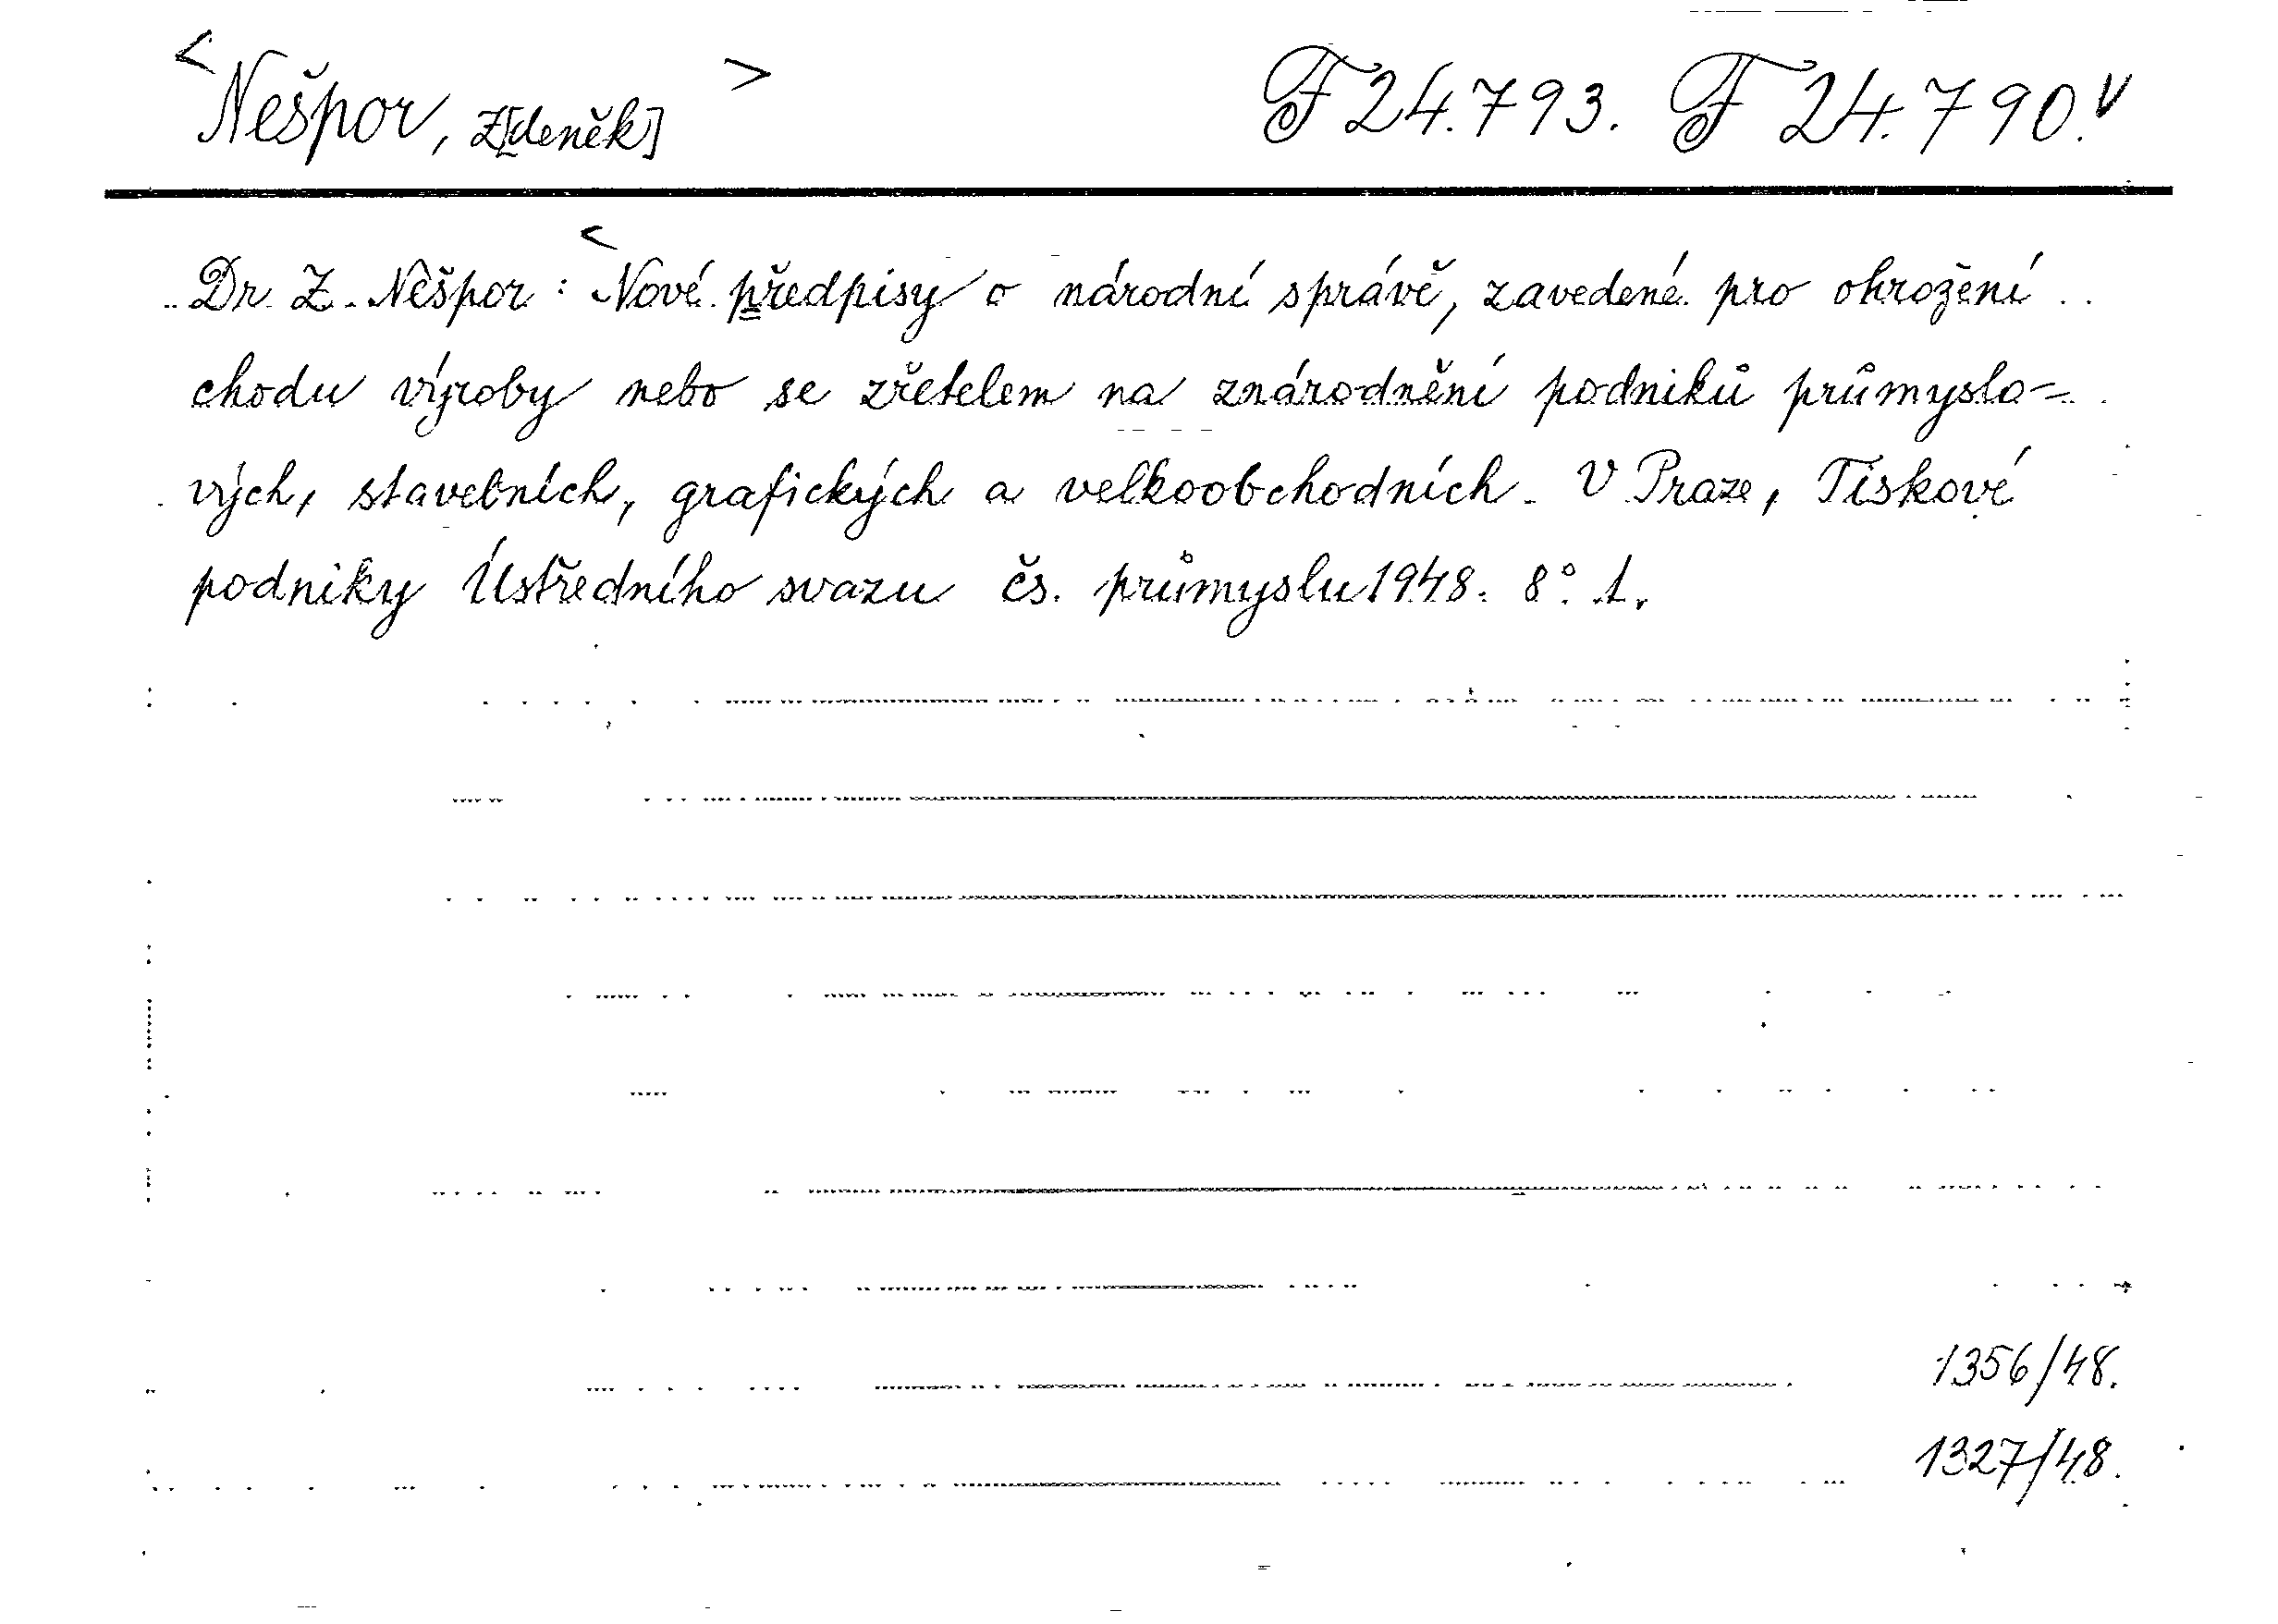 <Nešpor, Z[deněk]> F 24.793. F 24.790.V
Dr. Z. Nešpor: <Nové předpisy o národní správě, zavedené pro ohrožení
chodu výroby nebo se zřetelem na znárodnění podniků průmyslo=
vých, stavebních, grafických a velkoobchodních. V Praze, Tiskové
podniky Ústředního svazu čs. průmyslu 1948. 8°. 1.
1356/48.
1327/48.